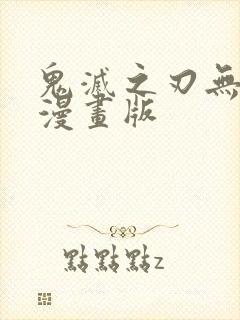 鬼滅之刃無
漫畫版
點點點z